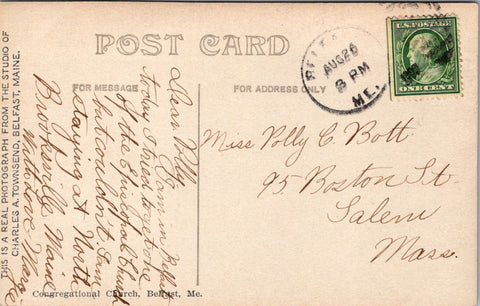 POST CARD
FOR MESSAGE
FOR ADDRESS ONLY
THIS IS A REAL PHOTOGRAPH FROM THE STUDIO OF
CHARLES A. TOWNSEND, BELFAST, MAINE.
Dear Polly
I am in Belfast
today I tried to get one
of the Episcopal Church
but couldn't. I am
staying at North
Brooksville Maine
With love Marg.
BELFAST
AUG 26
3 PM
ME.
U.S. POSTAGE
ONE CENT
Miss Polly C. Bott
95 Boston St.
Salem
Mass.
Congregational Church, Belfast, Me.